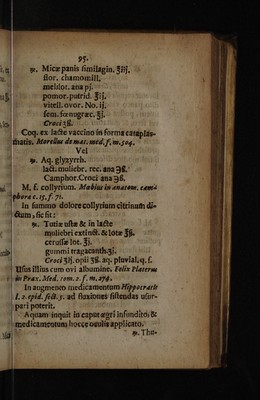 95.
℞. Micæ panis similagin. ℥iij.
flor. chamomill.
melilot. ana pj.
pomor. putrid. ℥ij.
vitell. ovor. No. ij.
sem. fœnugræc. ℥j.
Croci ʒß.
Coq. ex lacte vaccino in forma cataplas-
matis. Morellus de mat. med. f. m. 504.
Vel
℞. Aq. glyzyrrh.
lact. muliebr. rec. ana ℥ß.
Camphor. Croci ana ℈ß.
M. f. collyrium. Mœbius in anatom. cam-
phora c. 15. f. 71.
In summo dolore collyrium citrinum di-
ctum, sic fit:
℞. Tutiæ ustæ & in lacte
muliebri extinct. & lotæ ℥ß.
cerussæ lot. ℥j.
gummi tragacanth. ʒj.
Croci ʒij. opii ʒß. aq. pluvial. q. s.
Usus illius cum ovi albumine. Felix Platerus
in Prax. Med. tom. 2. f. m. 279.
In augmento medicamentum Hippocratis
l. 2. epid. sect. 5. ad fluxiones sistendas usur-
pari poterit.
Aquam inquit in caput ægri infundito, &
medicamentum hocce oculis applicato.
℞. Thu-